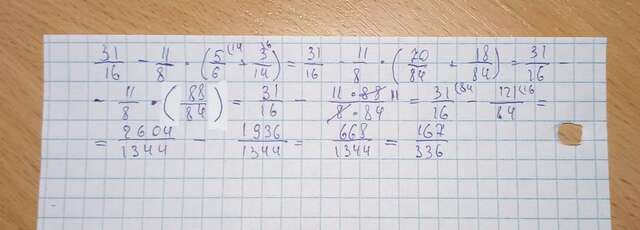 31/16 - 11/8 · (5/6 (14 + 3/14 (6) = 31/16 - 11/8 · (70/84 + 18/84) = 31/16 -
- 11/8 · (88/84) = 31/16 - 11 · 88 11/8 · 84 = 31/16 (84 - 121/84 (16 =
= 2604/1344 - 1936/1344 = 668/1344 = 167/336